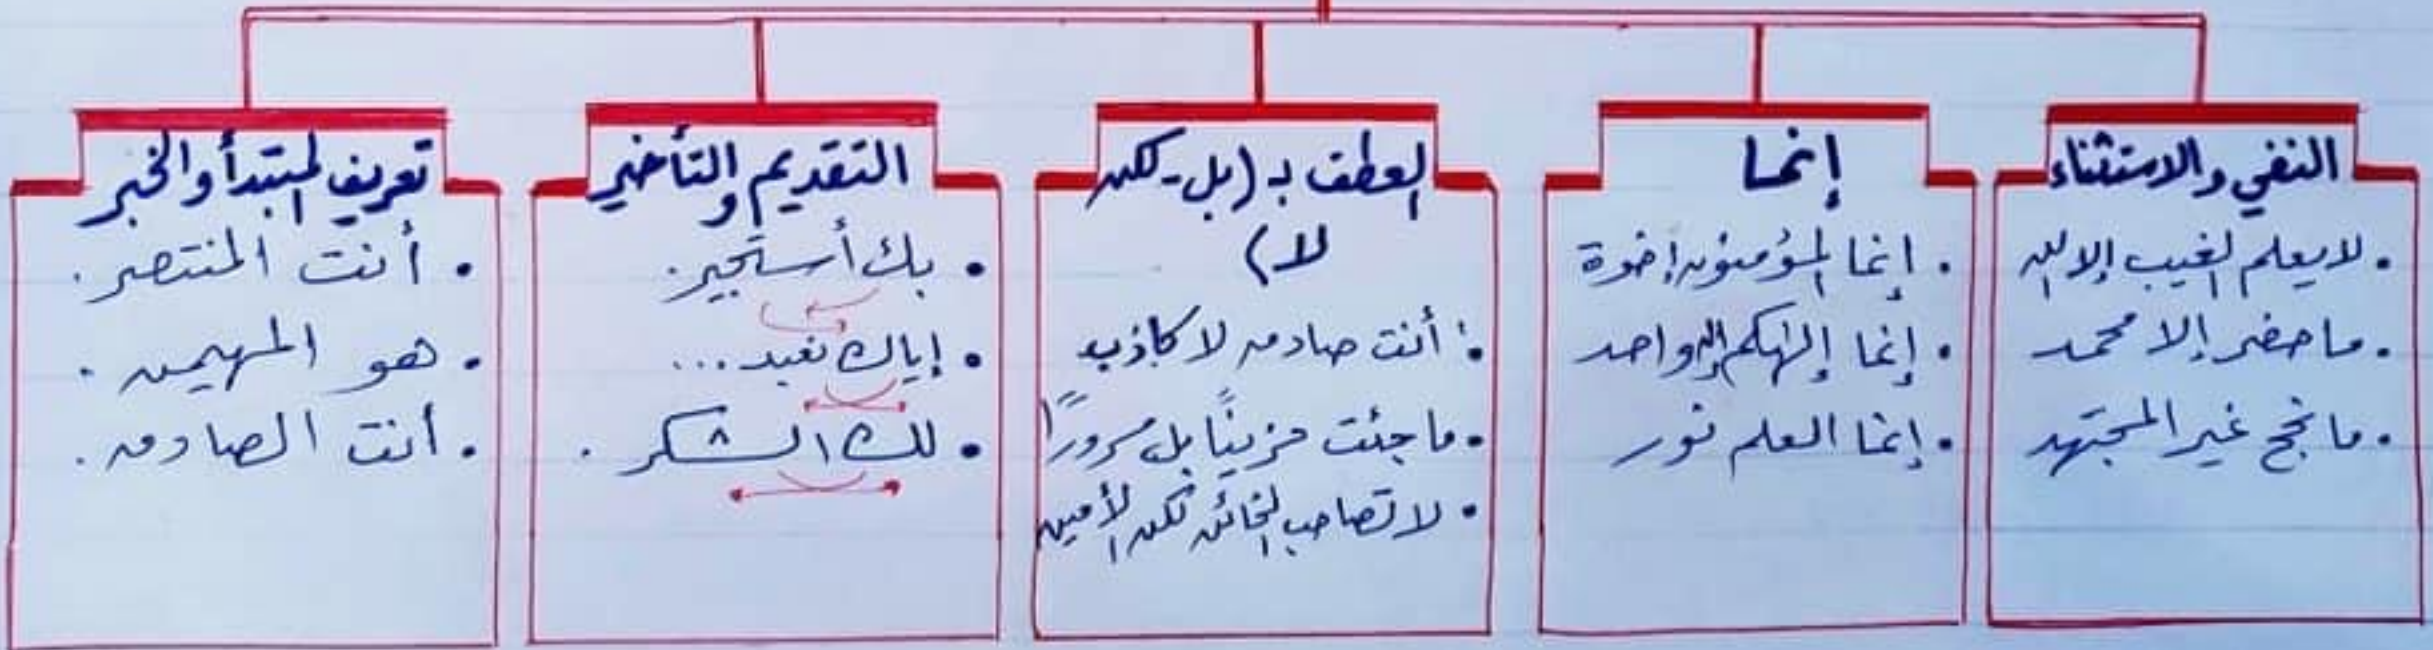 النفي والاستثناء
. لا يعلم الغيب إلا الله
. ما حضر إلا محمد
. ما نجح غير المجتهد
إنما
. إنما المؤمنون إخوة
. إنما إلهكم إله واحد
. إنما العلم نور
العطف بـ (بل - لكن
لا)
. أنت صادق لا كاذب
. ما جئت حزينًا بل مسرورًا
. لا تصاحب الخائن لكن الأمين
التقديم والتأخير
. بك أستجير.
. إياك نعبد ...
. لك الشكر .
تعريف المبتدأ والخبر
. أنت المنتصر.
. هو المهيمن .
. أنت الصادق .